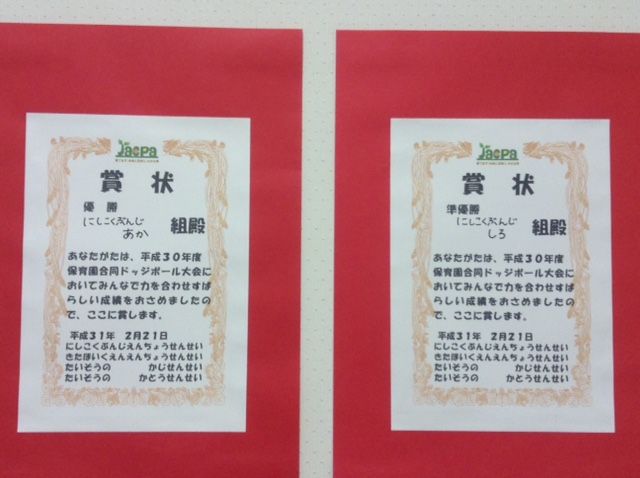 Jacpa
賞状
優勝
にしこくぶんじ
あか 組殿
あなたがたは、平成30年度
保育園合同ドッジボール大会に
おいてみんなで力を合わせすば
らしい成績をおさめましたの
で、ここに賞します。
平成31年 2月21日
にしこくぶんじえんちょうせんせい
きたほいくえんえんちょうせんせい
たいそうの かじせんせい
たいそうの かとうせんせい
Jacpa
賞状
準優勝
にしこくぶんじ
しろ 組殿
あなたがたは、平成30年度
保育園合同ドッジボール大会に
おいてみんなで力を合わせすば
らしい成績をおさめましたの
で、ここに賞します。
平成31年 2月21日
にしこくぶんじえんちょうせんせい
きたほいくえんえんちょうせんせい
たいそうの かじせんせい
たいそうの かとうせんせい